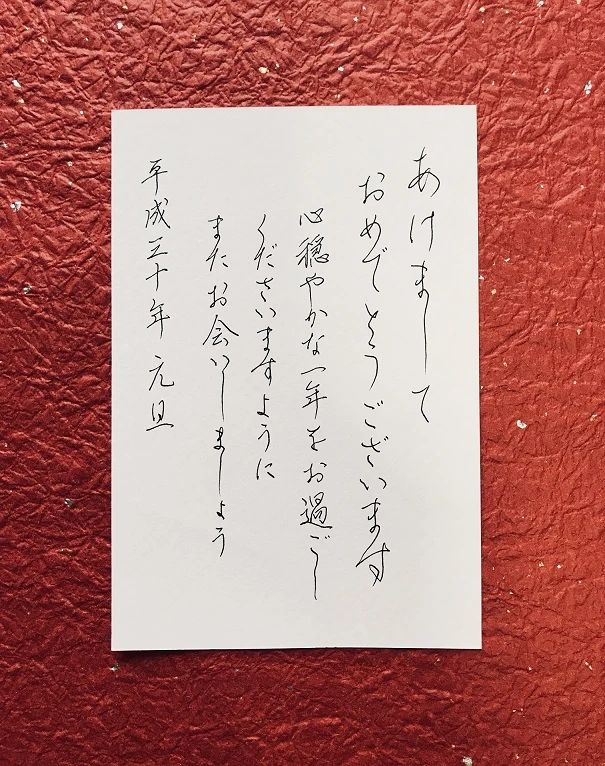 あけまして
おめでとうございます
心穏やかな一年をお過ごし
くださいますように
またお会いしましょう
平成三十年 元旦